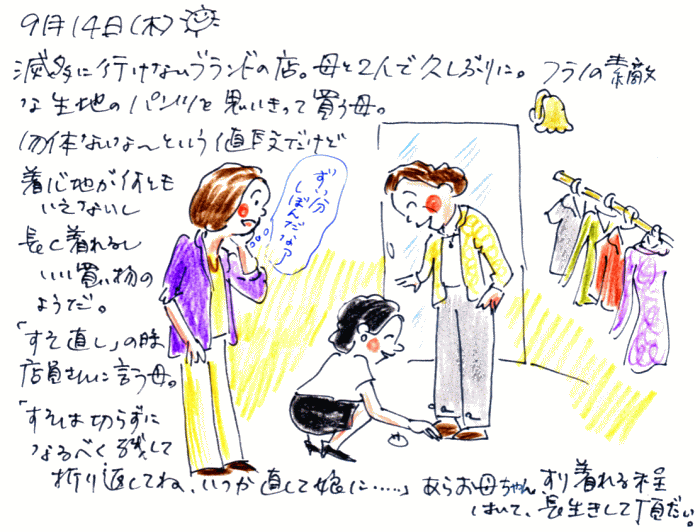 9月14日(木)
滅多に行けないブランドの店。母と2人で久しぶりに。フランスの素敵
な生地のパンツを思いきって買う母。
勿体ないな〜という値段だけど
着心地が何とも
いえないし
長く着れるし
いい買い物の
ようだ。
「すそ直し」の時
店員さんに言う母。
「すそは切らずに
なるべく残して
折り返してね、いつか直して娘に……」あらお母ちゃん、すり着れる程
はいて、長生きして頂だい。
ずい分
しぼんだなァ